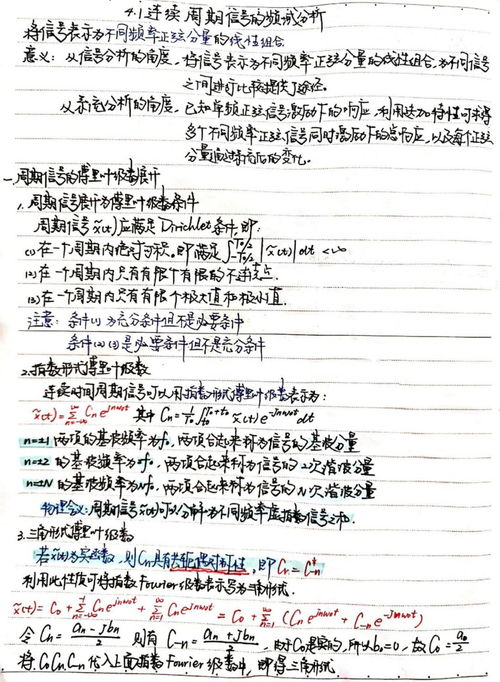 4.1 连续周期信号的频域分析
将信号表示为不同频率正弦分量的线性组合
意义：从信号分析的角度，将信号表示为不同频率正弦分量的线性组合，为不同信号
之间进行比较提供了途径。
从系统分析的角度，已知单频正弦信号激励下的响应，利用迭加特性可求得
多个不同频率正弦信号同时激励下的总响应，以及每个正弦
分量通过系统后的变化。
一、周期信号的傅里叶级数展开
1. 周期信号展开为傅里叶级数条件
周期信号 x̃(t) 应满足 Dirichlet 条件，即：
(1) 在一个周期内绝对可积。即满足 ∫_{-T0/2}^{T0/2} |x̃(t)| dt < ∞
(2) 在一个周期内只有有限个有限的不连续点.
(3) 在一个周期内只有有限个极大值和极小值.
注意：条件(1) 为充分条件但不是必要条件
条件(2)(3)是必要条件但不是充分条件
2. 指数形式傅里叶级数
连续时间周期信号可以用指数形式傅里叶级数表示为：
x̃(t) = Σ_{n=-∞}^{∞} Cn e^{jnω0t} 其中 Cn = 1/T0 ∫_{t0}^{T0+t0} x̃(t) e^{-jnω0t} dt
n=±1 两项的基波频率为f0，两项合起来称为信号的基波分量
n=±2 的基波频率为f0，两项合起来称为信号的2次谐波分量
n=±N 的基波频率为Nf0，两项合起来称为信号的N次谐波分量
物理含义：周期信号 x̃(t)可以分解为不同频率虚指数信号之和.
3. 三角形式傅里叶级数
若x̃(t)为实函数，则Cn具有共轭偶对称性，即 Cn = C*_{-n}
利用此性质可将指数Fourier级数表示写为三角形式.
x̃(t) = C0 + Σ_{n=-∞}^{-1} Cn e^{jnω0t} + Σ_{n=1}^{∞} Cn e^{jnω0t} = C0 + Σ_{n=1}^{∞} (Cn e^{jnω0t} + C-n e^{-jnω0t})
令 Cn = (an - jbn)/2 则有 C-n = (an + jbn)/2，由于C0是实的，所以b0=0，故C0 = a0/2
将 C0 Cn C-n 代入上面指数Fourier级数中，即得三角形式